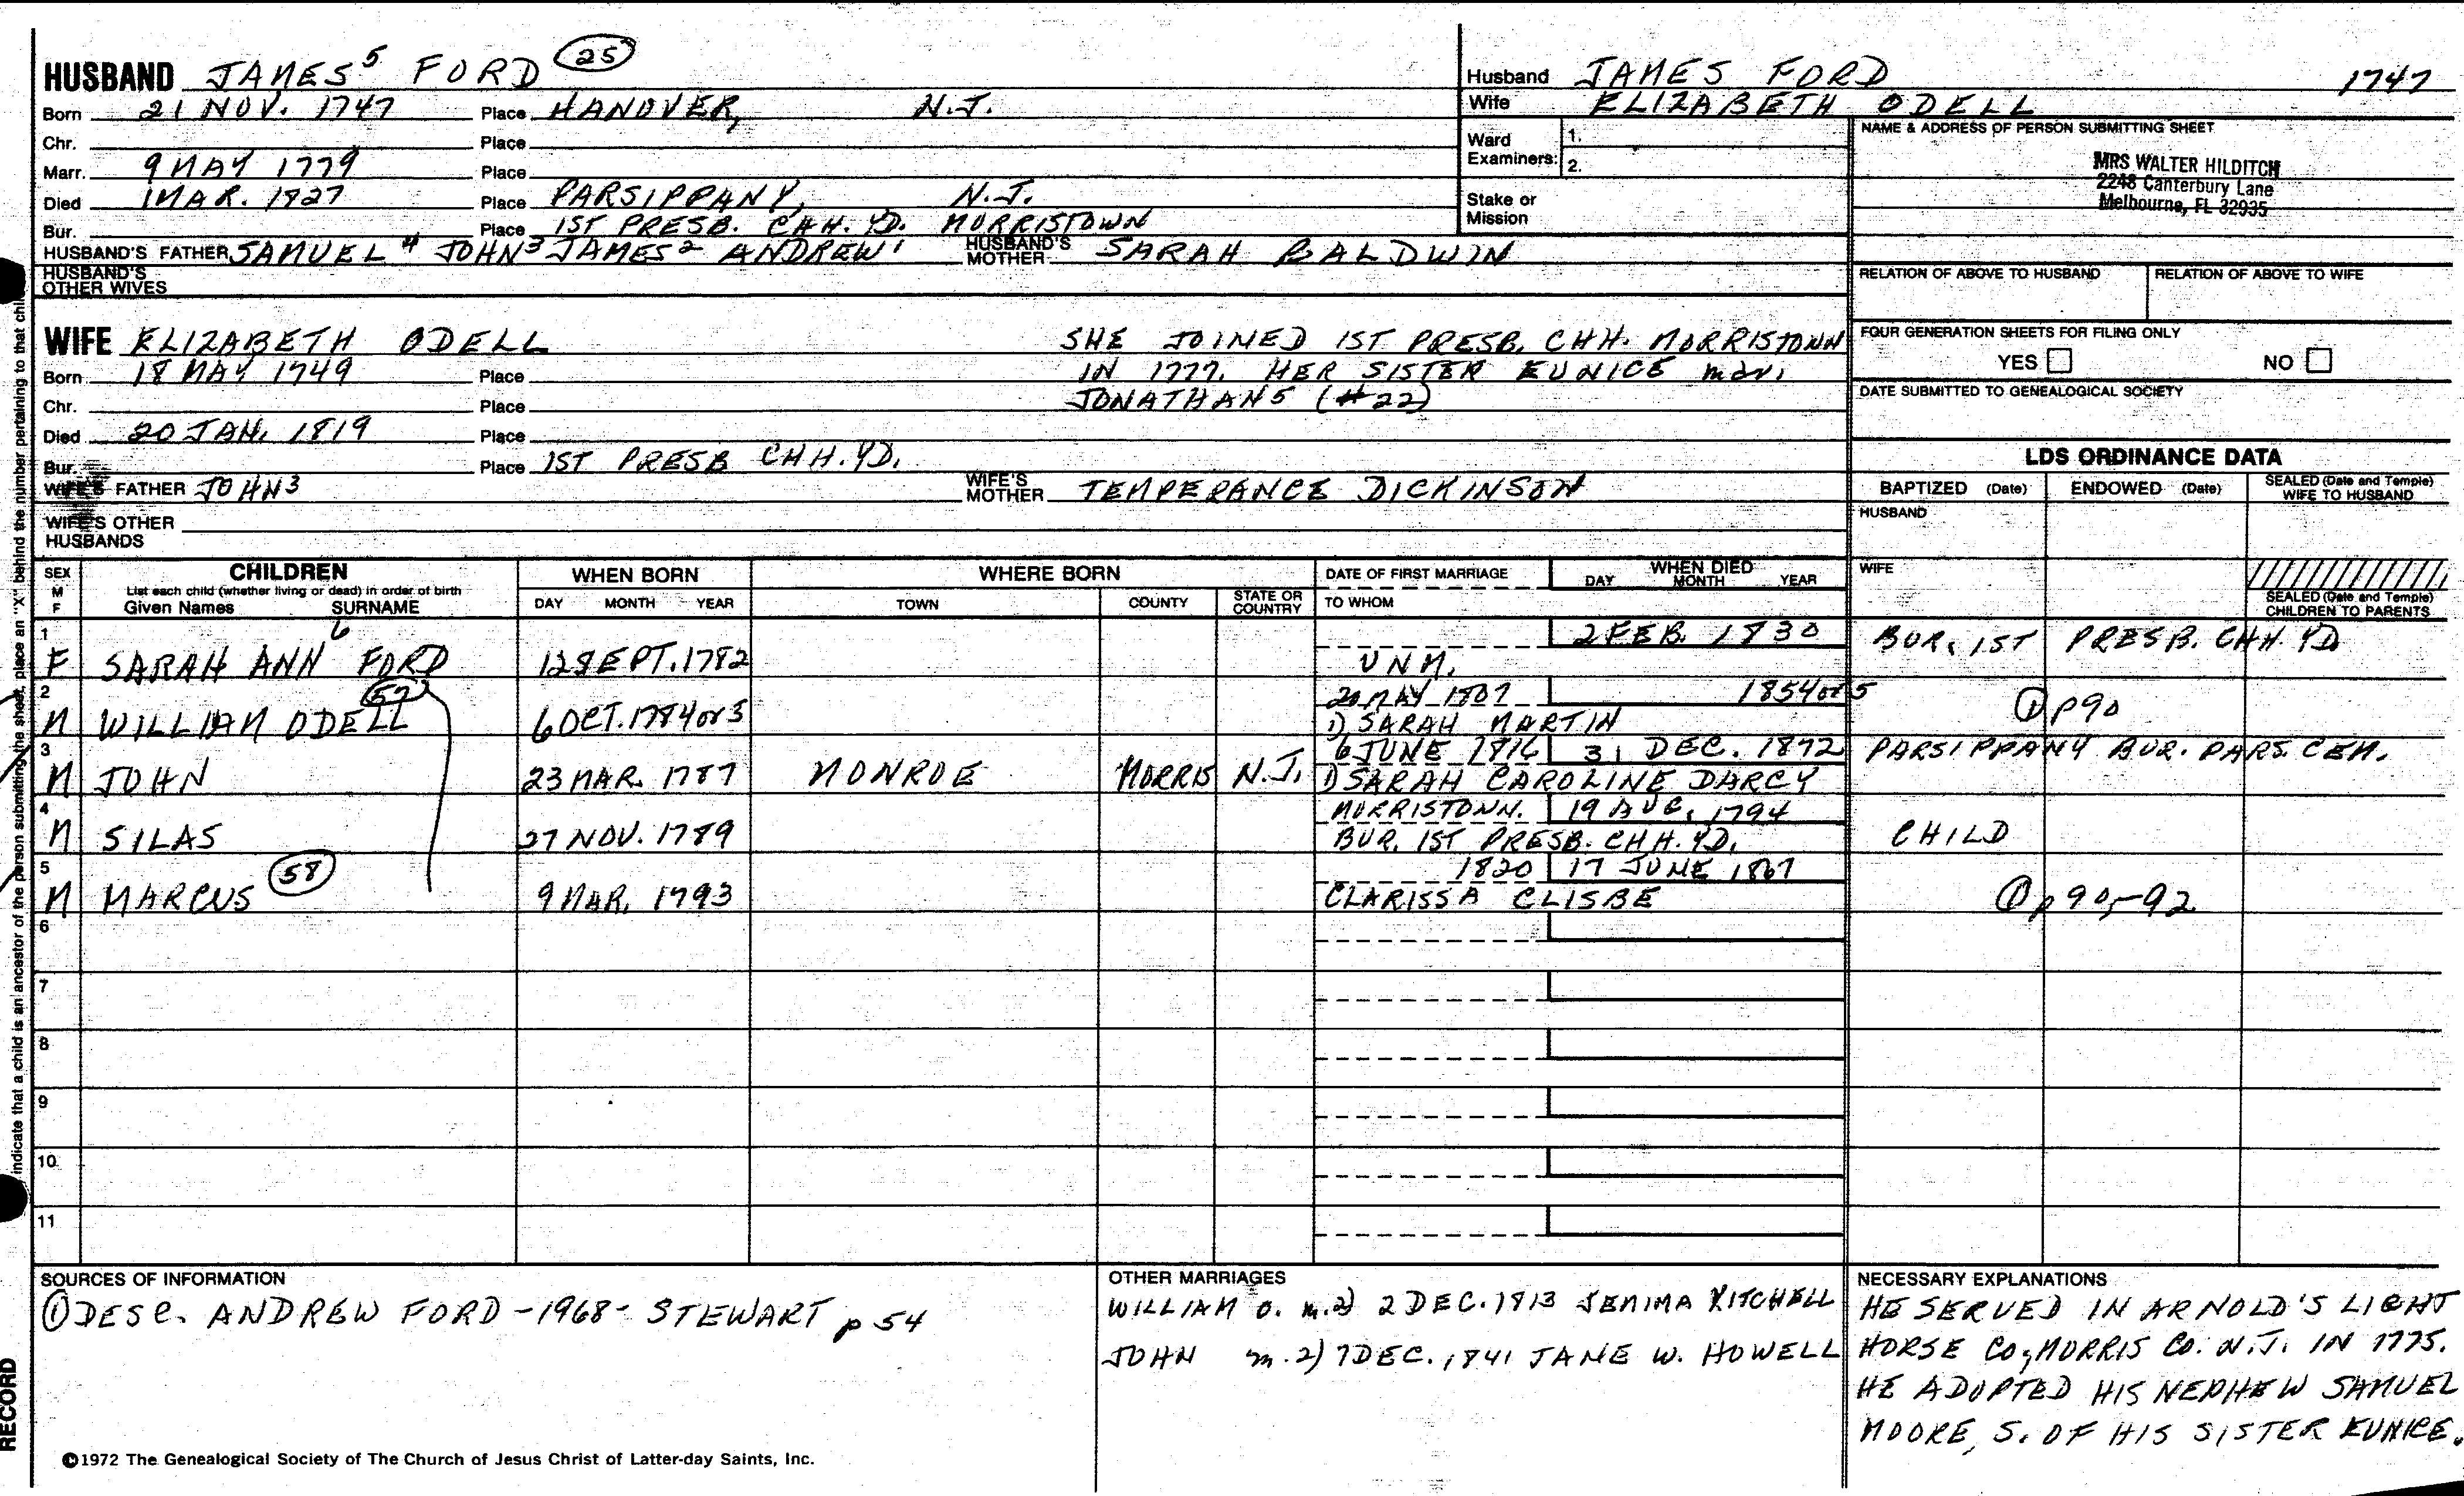 HUSBAND JAMES⁵ FORD (25)
Born 21 NOV. 1747 Place HANOVER, N.J.
Chr. Place
Marr. 9 MAY 1779 Place
Died 1 MAR. 1827 Place PARSIPPANY, N.J.
Bur. Place 1ST PRESB. CHH. YD. MORRISTOWN
HUSBAND'S FATHER SAMUEL⁴ JOHN³ JAMES² ANDREW¹ HUSBAND'S MOTHER SARAH BALDWIN
HUSBAND'S OTHER WIVES
Husband JAMES FORD 1747
Wife ELIZABETH ODELL
Ward Examiners: 1.
2.
Stake or Mission
NAME & ADDRESS OF PERSON SUBMITTING SHEET
MRS WALTER HILDITCH
2248 Canterbury Lane
Melbourne, FL 32935
RELATION OF ABOVE TO HUSBAND RELATION OF ABOVE TO WIFE
FOUR GENERATION SHEETS FOR FILING ONLY
YES NO
DATE SUBMITTED TO GENEALOGICAL SOCIETY
WIFE ELIZABETH ODELL SHE JOINED 1ST PRESB. CHH. MORRISTOWN
Born 18 MAY 1749 Place IN 1777. HER SISTER EUNICE mar.
Chr. Place JONATHAN5 (#22)
Died 20 JAN. 1819 Place
Bur. Place 1ST PRESB CHH. YD.
WIFE'S FATHER JOHN³ WIFE'S MOTHER TEMPERANCE DICKINSON
WIFE'S OTHER HUSBANDS
LDS ORDINANCE DATA
BAPTIZED (Date) ENDOWED (Date) SEALED (Date and Temple) WIFE TO HUSBAND
HUSBAND
WIFE
SEALED (Date and Temple) CHILDREN TO PARENTS
SEX M F CHILDREN WHEN BORN WHERE BORN DATE OF FIRST MARRIAGE WHEN DIED
List each child (whether living or dead) in order of birth DAY MONTH YEAR
Given Names SURNAME DAY MONTH YEAR TOWN COUNTY STATE OR COUNTRY TO WHOM
1 6 2 FEB. 1830 BUR. 1ST PRESB. CHH. YD
F SARAH ANN FORD 12 SEPT. 1782 UNM.
2 (57) 20 MAY 1807 1854 or 5
M WILLIAM ODELL 6 OCT. 1784 or 5 1) SARAH MARTIN ① p90
3 6 JUNE 1816 31 DEC. 1872 PARSIPPANY BUR. PARS. CEM.
M JOHN 23 MAR. 1787 MONROE MORRIS N.J. 1) SARAH CAROLINE DARCY
4 MORRISTOWN. 19 AUG. 1794
M SILAS 27 NOV. 1789 BUR. 1ST PRESB. CHH. YD. CHILD
5 (58) 1820 17 JUNE 1867
M MARCUS 9 MAR. 1793 CLARISSA CLISBE ① p90-92
6
7
8
9
10
11
SOURCES OF INFORMATION
① DESC. ANDREW FORD - 1968 - STEWART p 54
OTHER MARRIAGES
WILLIAM O. m.2) 2 DEC. 1813 JEMIMA KITCHELL
JOHN m.2) 7 DEC. 1841 JANE W. HOWELL
NECESSARY EXPLANATIONS
HE SERVED IN ARNOLD'S LIGHT
HORSE CO, MORRIS CO. N.J. IN 1775.
HE ADOPTED HIS NEPHEW SAMUEL
MOORE, S. OF HIS SISTER EUNICE.
©1972 The Genealogical Society of The Church of Jesus Christ of Latter-day Saints, Inc.
indicate that a child is an ancestor of the person submitting the sheet, place an "X" behind the number pertaining to that child
RECORD